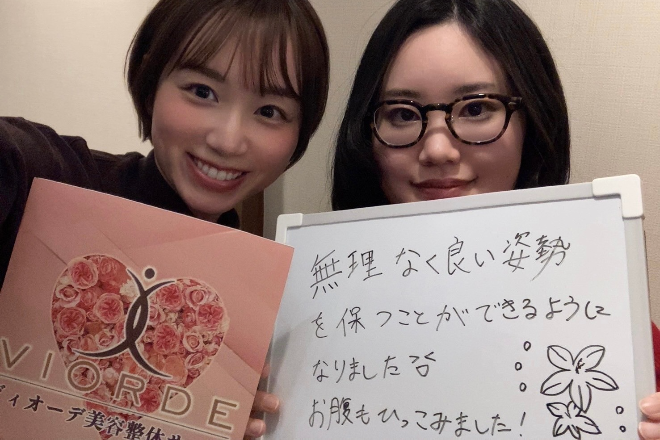 VIORDE
ディオーデ美容整体
無理なく良い姿勢
を保つことができるように
なりました
お腹もひっこみました!